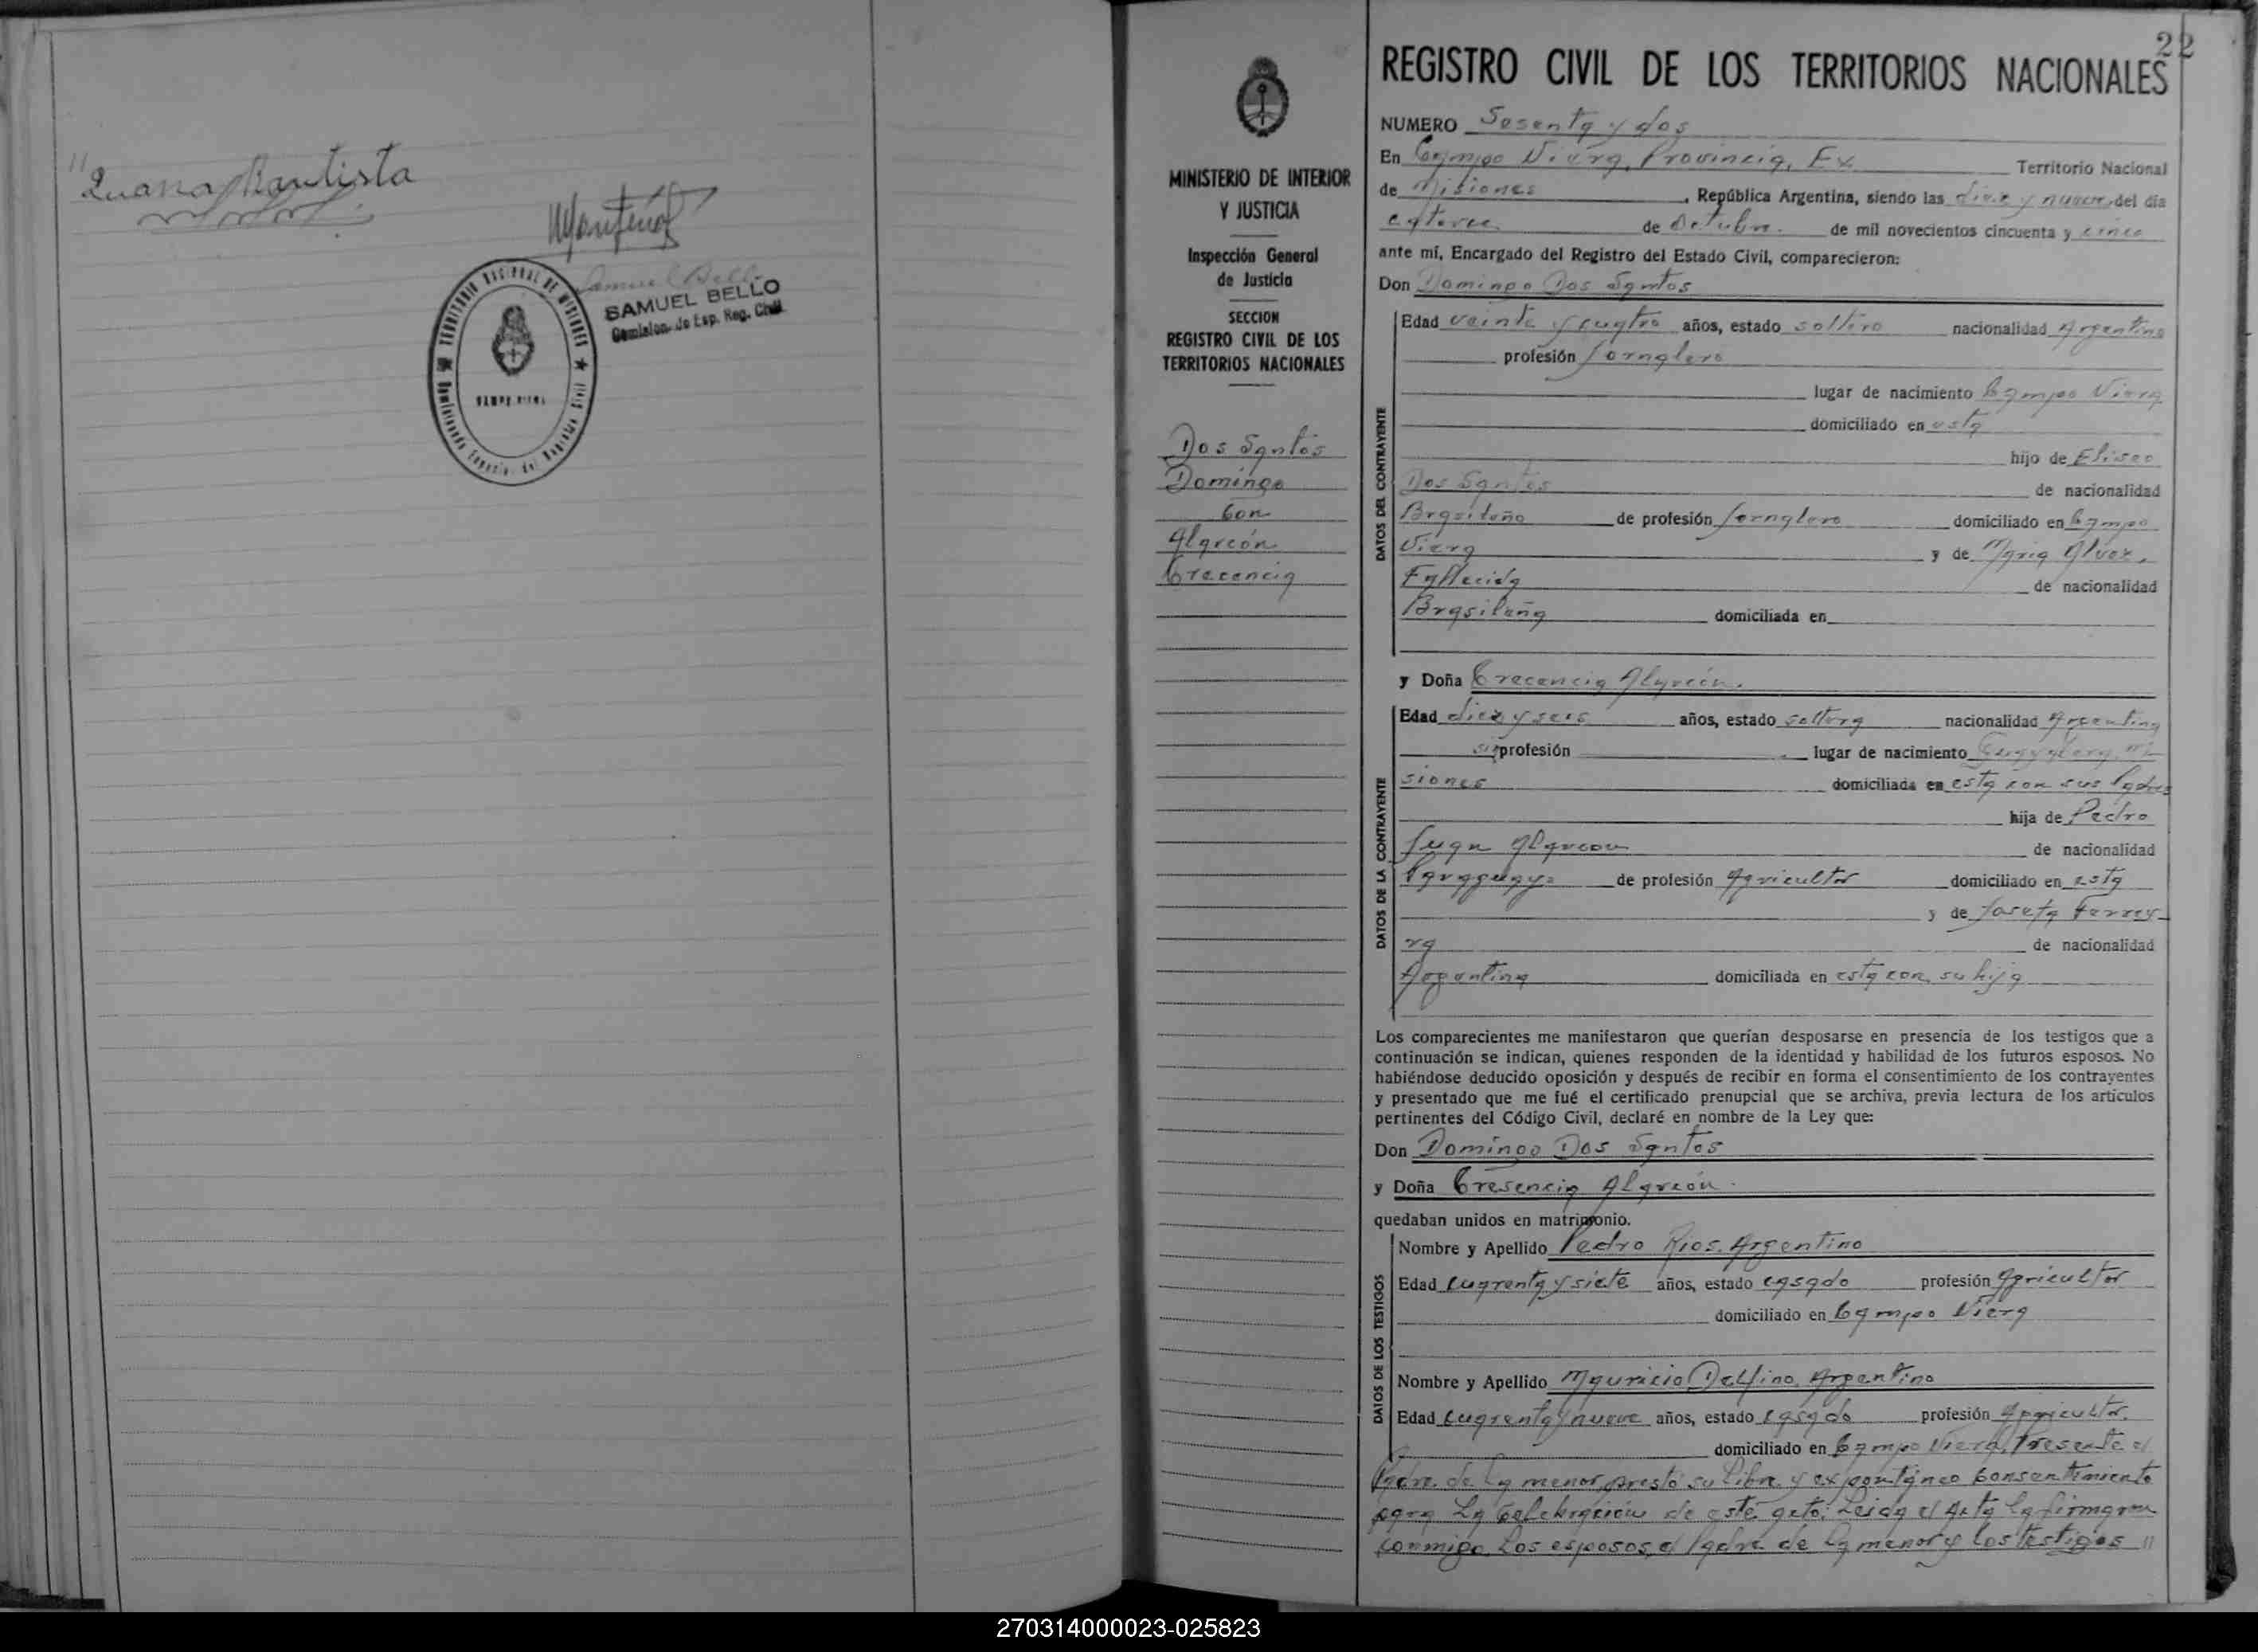 "Juana Bautista
SAMUEL BELLO
Comision. de Esp. Reg. Civil
TERRITORIO NACIONAL DE MISIONES
22
MINISTERIO DE INTERIOR
Y JUSTICIA
Inspección General
de Justicia
SECCION
REGISTRO CIVIL DE LOS
TERRITORIOS NACIONALES
Dos Santos
Domingo
Con
Alarcón
Crecencia
REGISTRO CIVIL DE LOS TERRITORIOS NACIONALES
NUMERO Sesenta y dos
En Campo Viera, Provincia, Ex Territorio Nacional
de Misiones, República Argentina, siendo las diez y nueve del día
catorce de Octubre de mil novecientos cincuenta y cinco
ante mí, Encargado del Registro del Estado Civil, comparecieron:
Don Domingo Dos Santos
DATOS DEL CONTRAYENTE
Edad veinte y cuatro años, estado soltero nacionalidad Argentino
profesión Jornalero
lugar de nacimiento Campo Viera
domiciliado en esta
hijo de Eliseo
Dos Santos de nacionalidad
Brasileño de profesión Jornalero domiciliado en Campo
Viera y de Maria Alvez,
Fallecida de nacionalidad
Brasileña domiciliada en
y Doña Crecencia Alarcón.
DATOS DE LA CONTRAYENTE
Edad diez y seis años, estado soltera nacionalidad Argentina
sin profesión lugar de nacimiento Mi
siones domiciliada en esta con sus Padres
hija de Pedro
Juan Alarcon de nacionalidad
Paraguayo de profesión Agricultor domiciliado en esta
y de Josefa Ferrey
ra de nacionalidad
Argentina domiciliada en esta con su hija
Los comparecientes me manifestaron que querían desposarse en presencia de los testigos que a
continuación se indican, quienes responden de la identidad y habilidad de los futuros esposos. No
habiéndose deducido oposición y después de recibir en forma el consentimiento de los contrayentes
y presentado que me fué el certificado prenupcial que se archiva, previa lectura de los artículos
pertinentes del Código Civil, declaré en nombre de la Ley que:
Don Domingo Dos Santos
y Doña Cresencia Alarcón.
quedaban unidos en matrimonio.
DATOS DE LOS TESTIGOS
Nombre y Apellido Pedro Rios, Argentino
Edad cuarenta y siete años, estado casado profesión Agricultor
domiciliado en Campo Viera
Nombre y Apellido Mauricio Delfino, Argentino
Edad cuarenta y nueve años, estado casado profesión Agricultor,
domiciliado en Campo Viera, Presente el
Padre de la menor, prestó su libre y expontáneo Consentimiento
para La Celebración de este acto: Leida el Acta la firmaron
conmigo Los esposos, el Padre de la menor y los testigos "
270314000023-025823